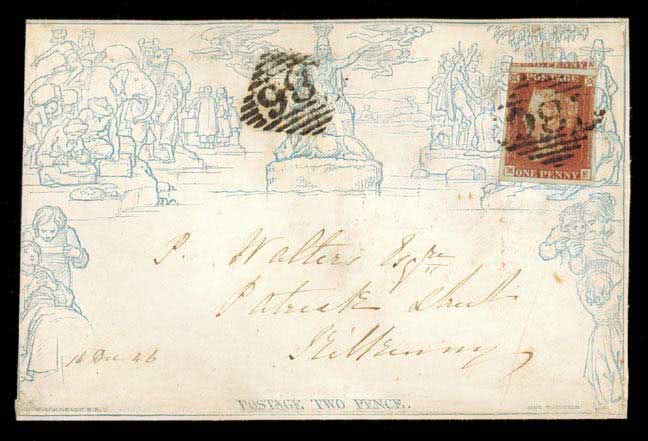 POSTAGE
ONE PENNY
P. Walters Esqre
Patrick Street
Kilkenny
16 Dec 46
POSTAGE TWO PENCE.